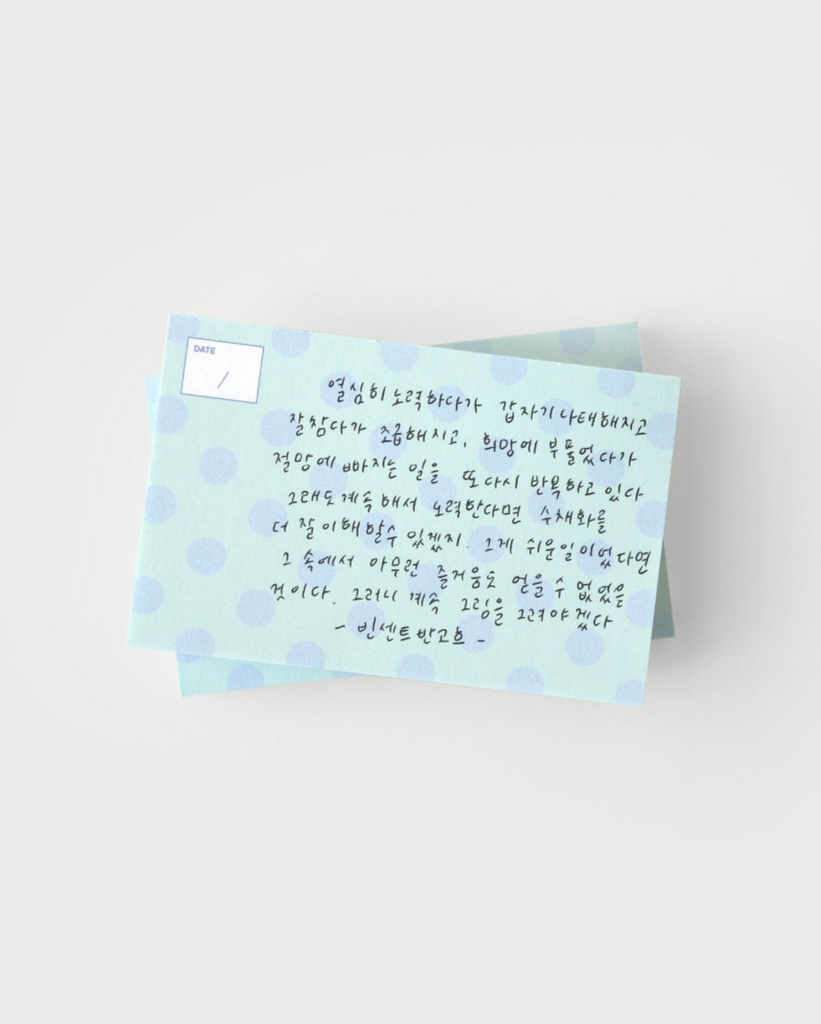 DATE
/
열심히 노력하다가 갑자기 나태해지고
잘참다가 조급해지고, 희망에 부풀었다가
절망에 빠지는 일을 또다시 반복하고 있다
그래도 계속해서 노력한다면 수채화를
더 잘 이해할수 있겠지. 그게 쉬운일이었다면
그 속에서 아무런 즐거움도 얻을 수 없었을
것이다. 그러니 계속 그림을 그려야겠다
- 빈센트반고흐 -